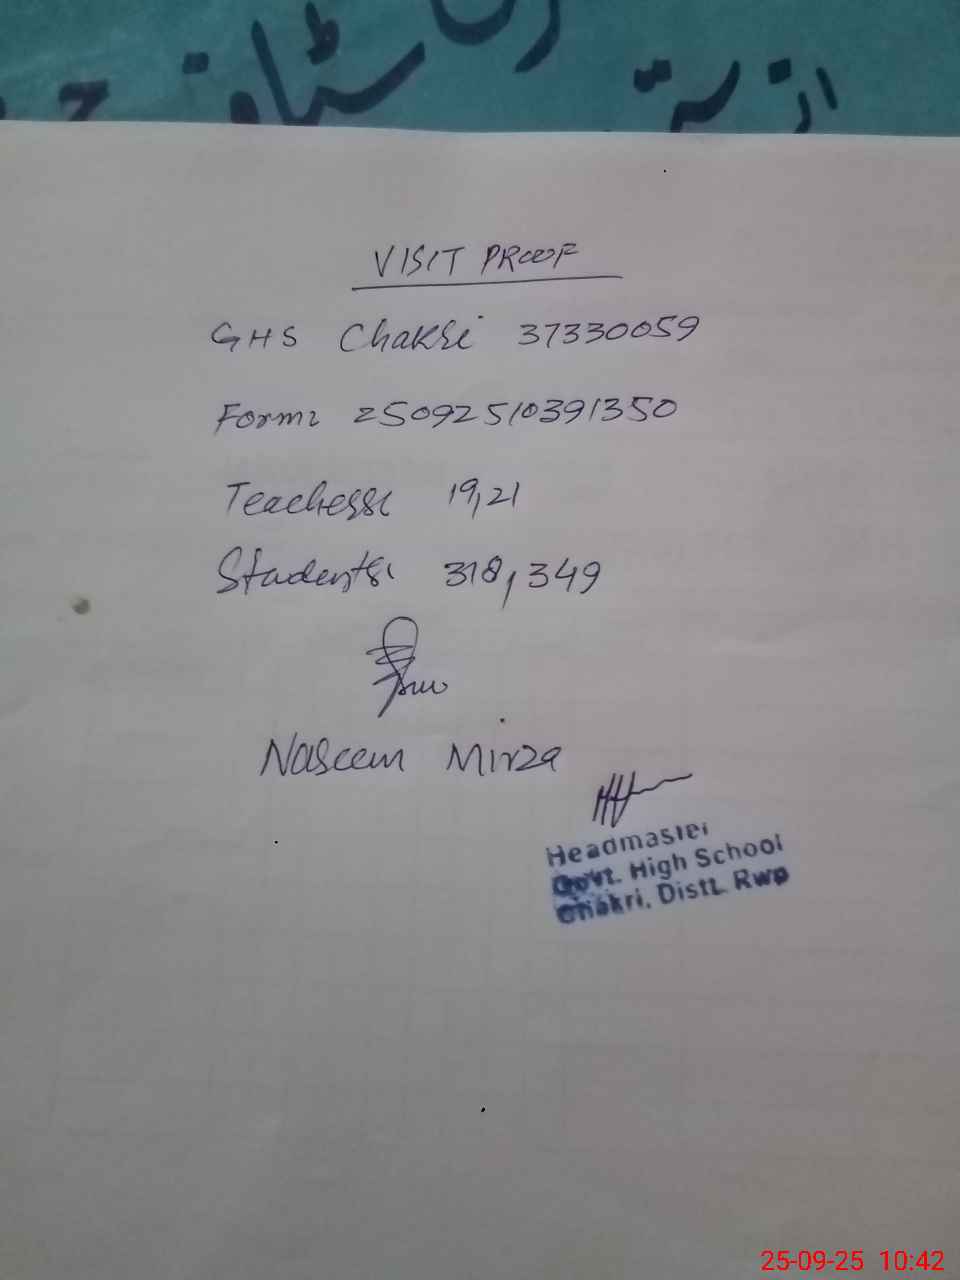 VISIT PROOF
GHS Chakri 37330059
Form: 25092510391350
Teachers: 19,21
Students: 318,349
Naseem Mirza
Headmaster
Govt. High School
Chakri, Distt. Rwp
25-09-25 10:42